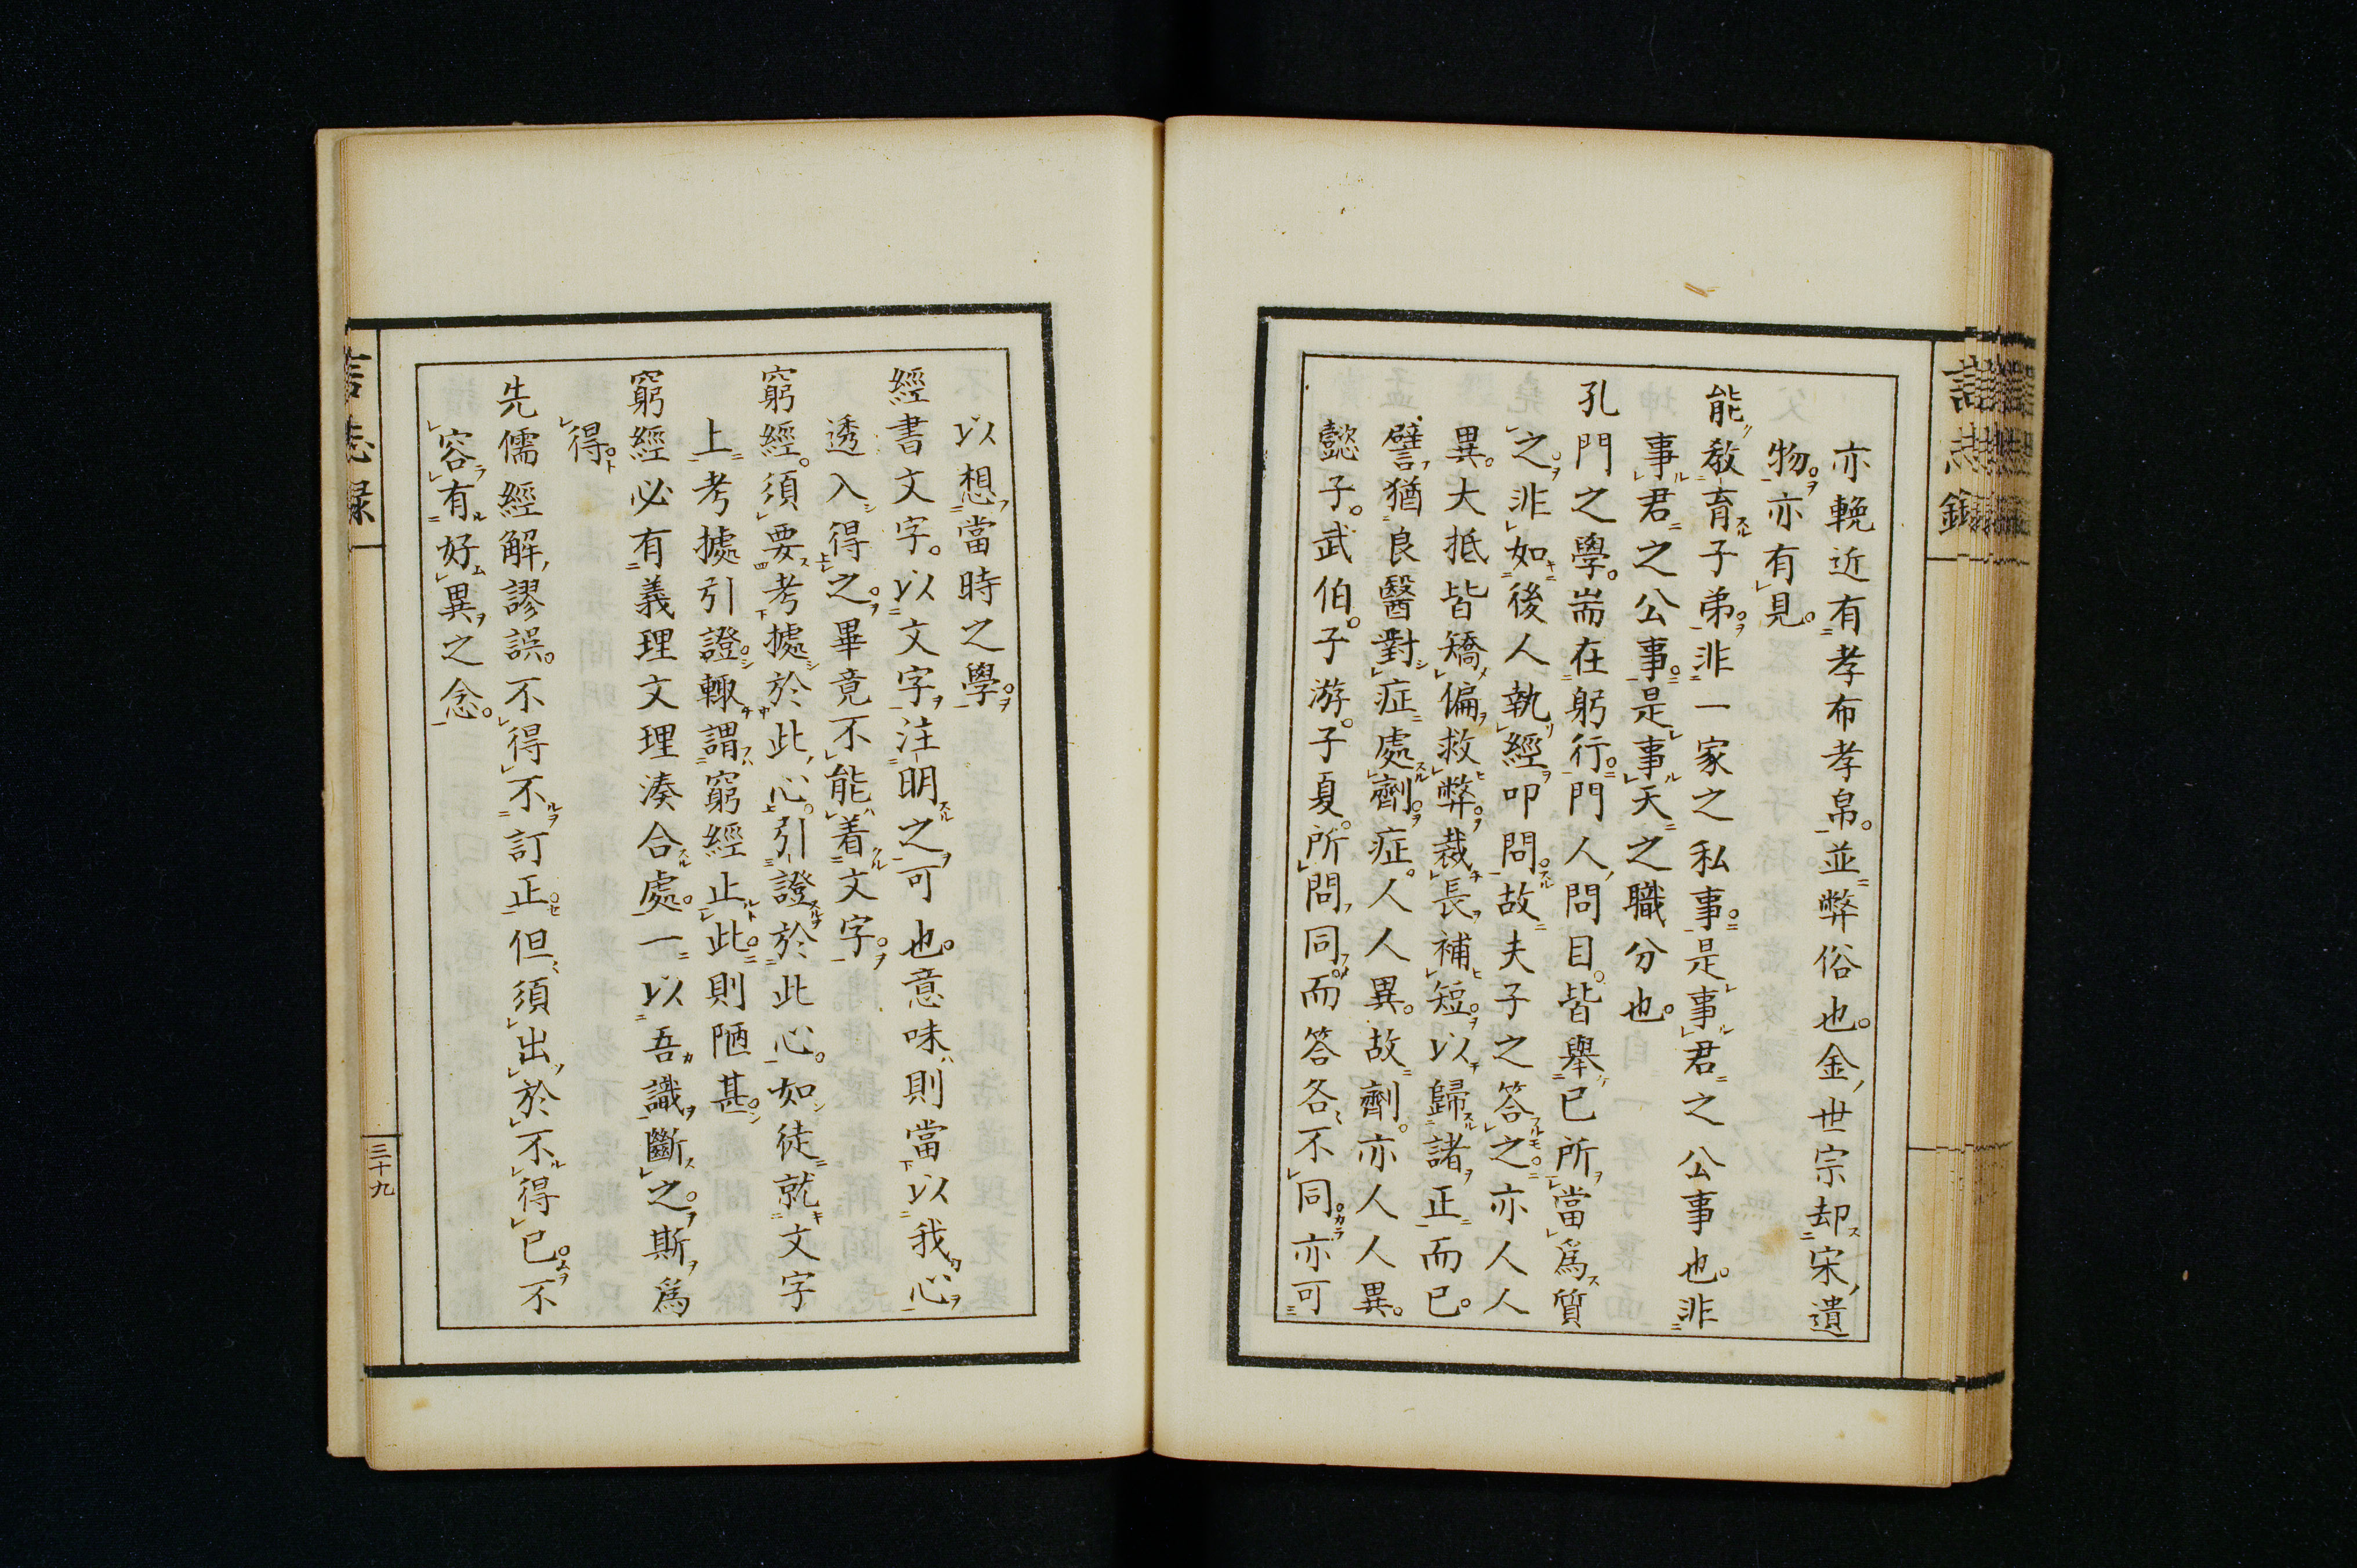 亦輓近有孝布孝帛。並弊俗也。金世宗却宋遺
物。亦有見。
能教育子弟。非一家之私事。是事君之公事也。非
事君之公事。是事天之職分也。
孔門之學。耑在躬行。門人問目。皆擧己所當爲質
之。非如後人執經叩問。故夫子之答之亦人人
異。大抵皆矯偏救弊。裁長補短。以歸諸正而已。
譬猶良醫對症處劑。症。人人異。故劑。亦人人異。
懿子。武伯。子游。子夏。所問同。而答各不同。亦可
以想當時之學。
經書文字。以文字注明之可也。意味則當以我心
透入得之。畢竟不能着文字。
窮經。須要考據於此心。引證於此心。如徒就文字
上考據引證。輙謂窮經止此。則陋甚。
窮經必有義理文理湊合處。一以吾識斷之。斯爲
得。
先儒經解謬誤。不得不訂正。但須出於不得已。不
容有好異之念。
言志録
三十九